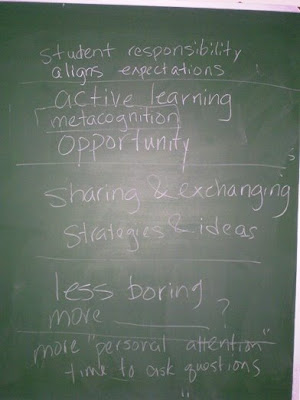 student responsibility
aligns expectations
active learning
metacognition
opportunity
sharing & exchanging
strategies & ideas
less boring
more ________ ?
more "personal attention"
time to ask questions
"